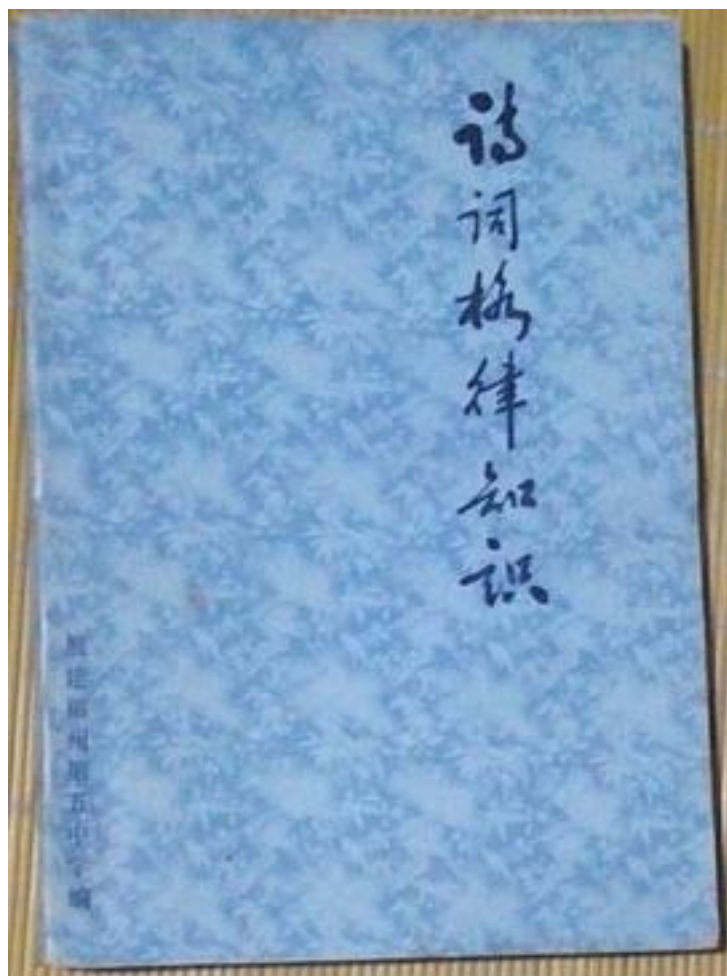 诗词格律知识
福建福州第五中学编